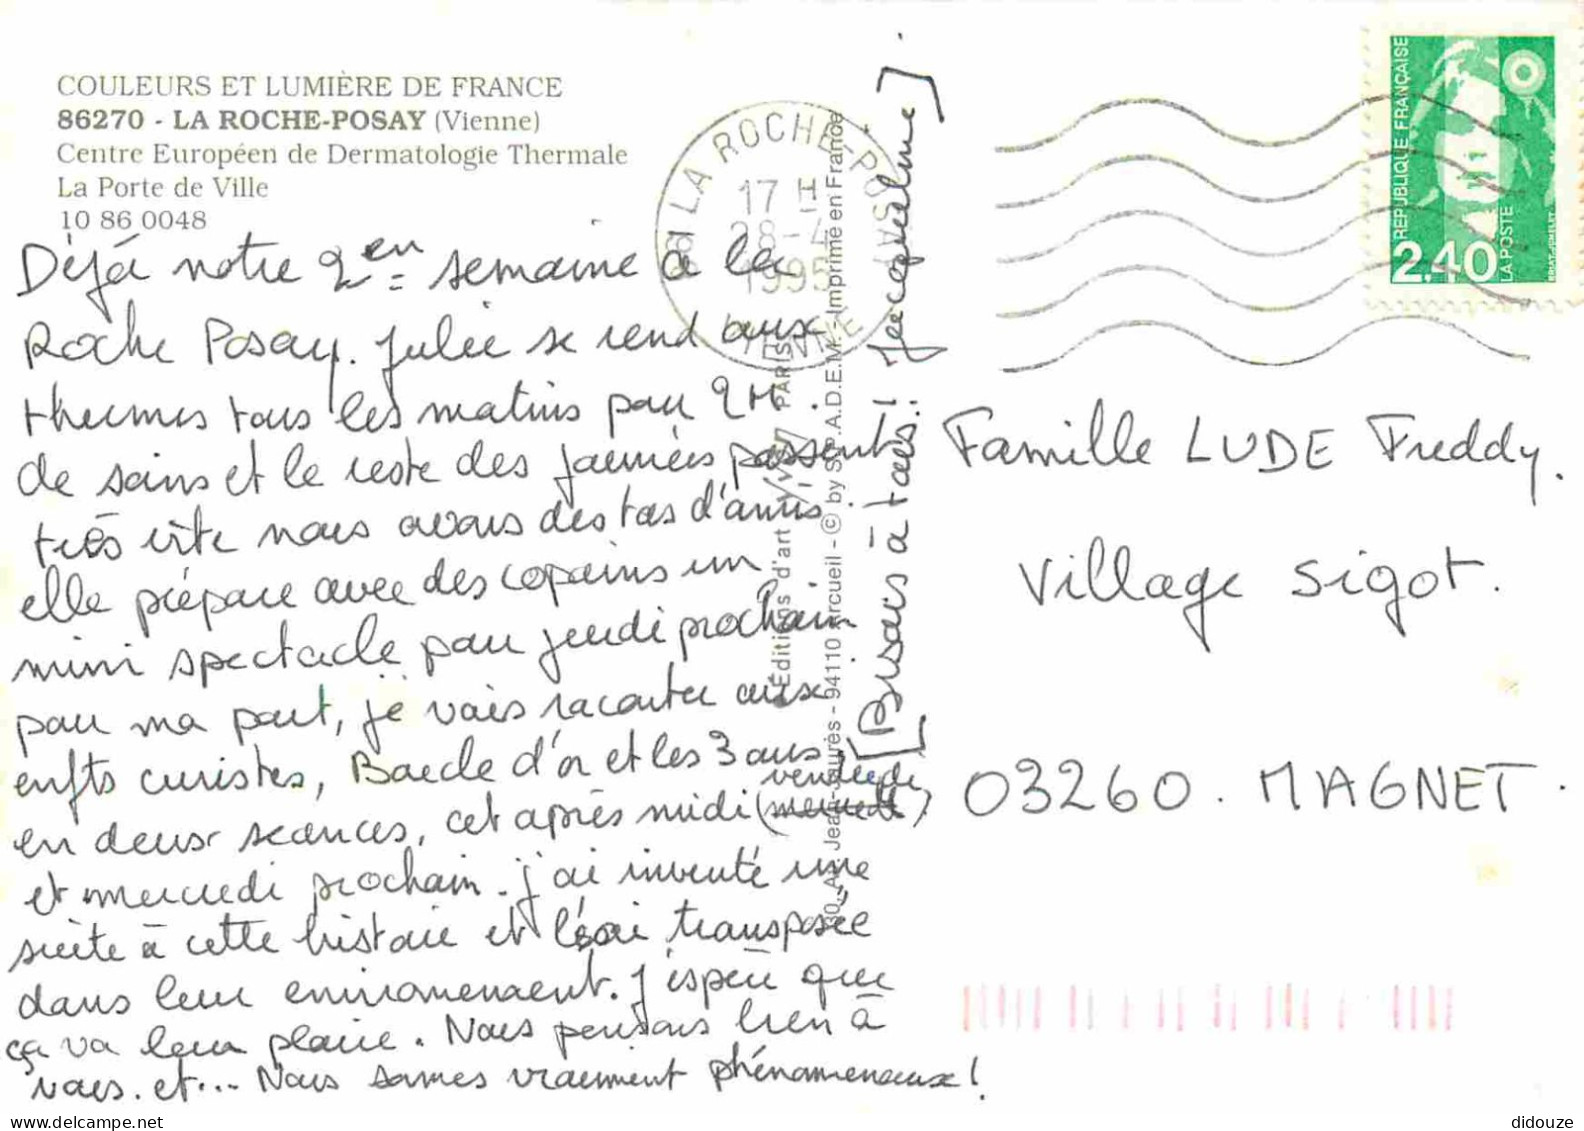 COULEURS ET LUMIÈRE DE FRANCE
86270 - LA ROCHE-POSAY (Vienne)
Centre Européen de Dermatologie Thermale
La Porte de Ville
10 86 0048
Déjá notre 2en semaine à la
Roche Posay. Julie se rend aux
thermes tous les matins pour 2H.
de soins et le reste des journées passent
très vite nous avons des tas d'amis
elle prépare avec des copains un
mini spectacle pour jeudi prochain
pour ma part, je vais raconter aux
enfts curistes, Boucle d'or et les 3 ours,
en deux séances, cet après midi (vendredi)
et mercredi prochain. J'ai inventé une
suite à cette histoire et l'ai transposée
dans leur environnement. J'espère que
ça va leur plaire. Nous pensons bien à
vous. et... Nous sommes vraiment phénomenaux!
[Bisous à tous! Jacqueline]
LA ROCHE-POSAY
17 H
28-4
1995
VIENNE
Éditions d'art Yvon PARIS
30, Av. Jean-Jaurès - 94110 Arcueil - © by S.P.A.D.E.M. - Imprimé en France
REPUBLIQUE FRANÇAISE
2,40
LA POSTE
BRIAT-JUMELET
Famille LUDE Freddy.
Village Sigot.
03260. MAGNET.
didouze